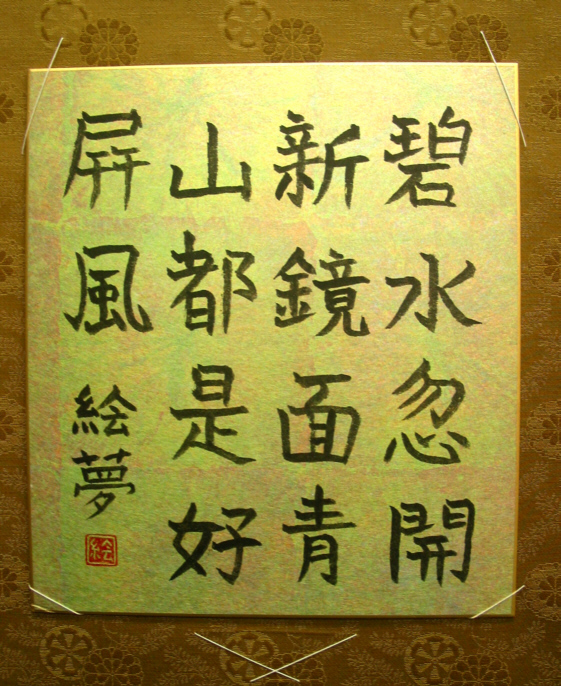 碧水忽開
新鏡面青
山都是好
屏風
絵夢
絵